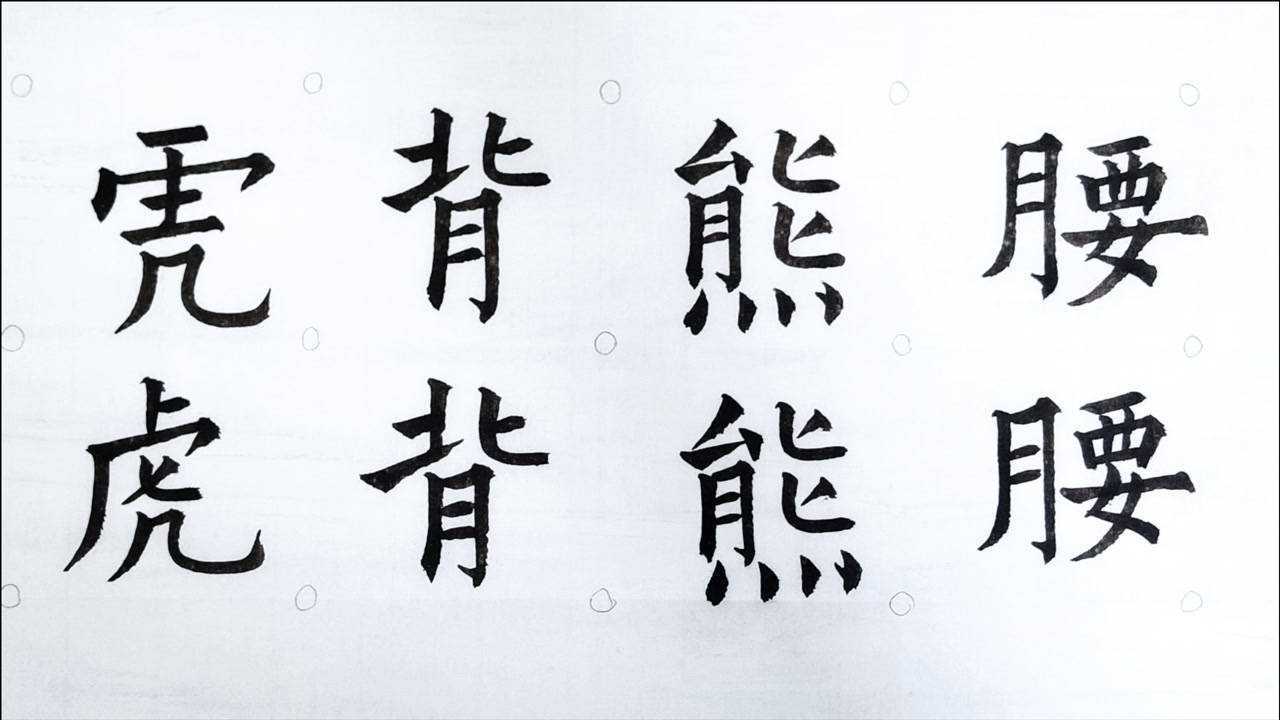 虎背熊腰
虎背熊腰